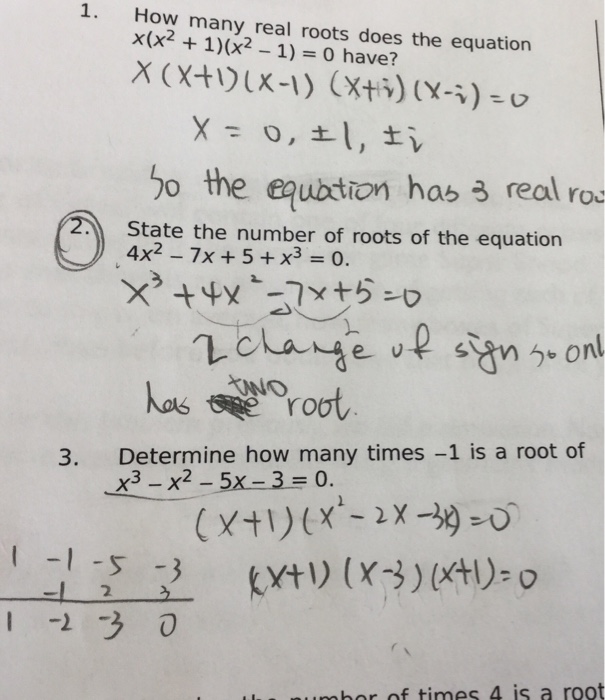 1. How many real roots does the equation
x(x² + 1)(x² – 1) = 0 have?
X(X+1)(X-1)(X+i)(X-i)=0
X = 0, ±1, ±i
So the equation has 3 real roo
2. State the number of roots of the equation
4x² – 7x + 5 + x³ = 0.
x³+4x²-7x+5=0
2 change of sign so onl
has two root.
3. Determine how many times –1 is a root of
x³ – x² – 5x – 3 = 0.
(x+1)(x²-2x-3)=0
1 -1 -5 -3
(x+1)(x-3)(x+1)=0
-1 2 3
1 -2 -3 0
number of times 4 is a root